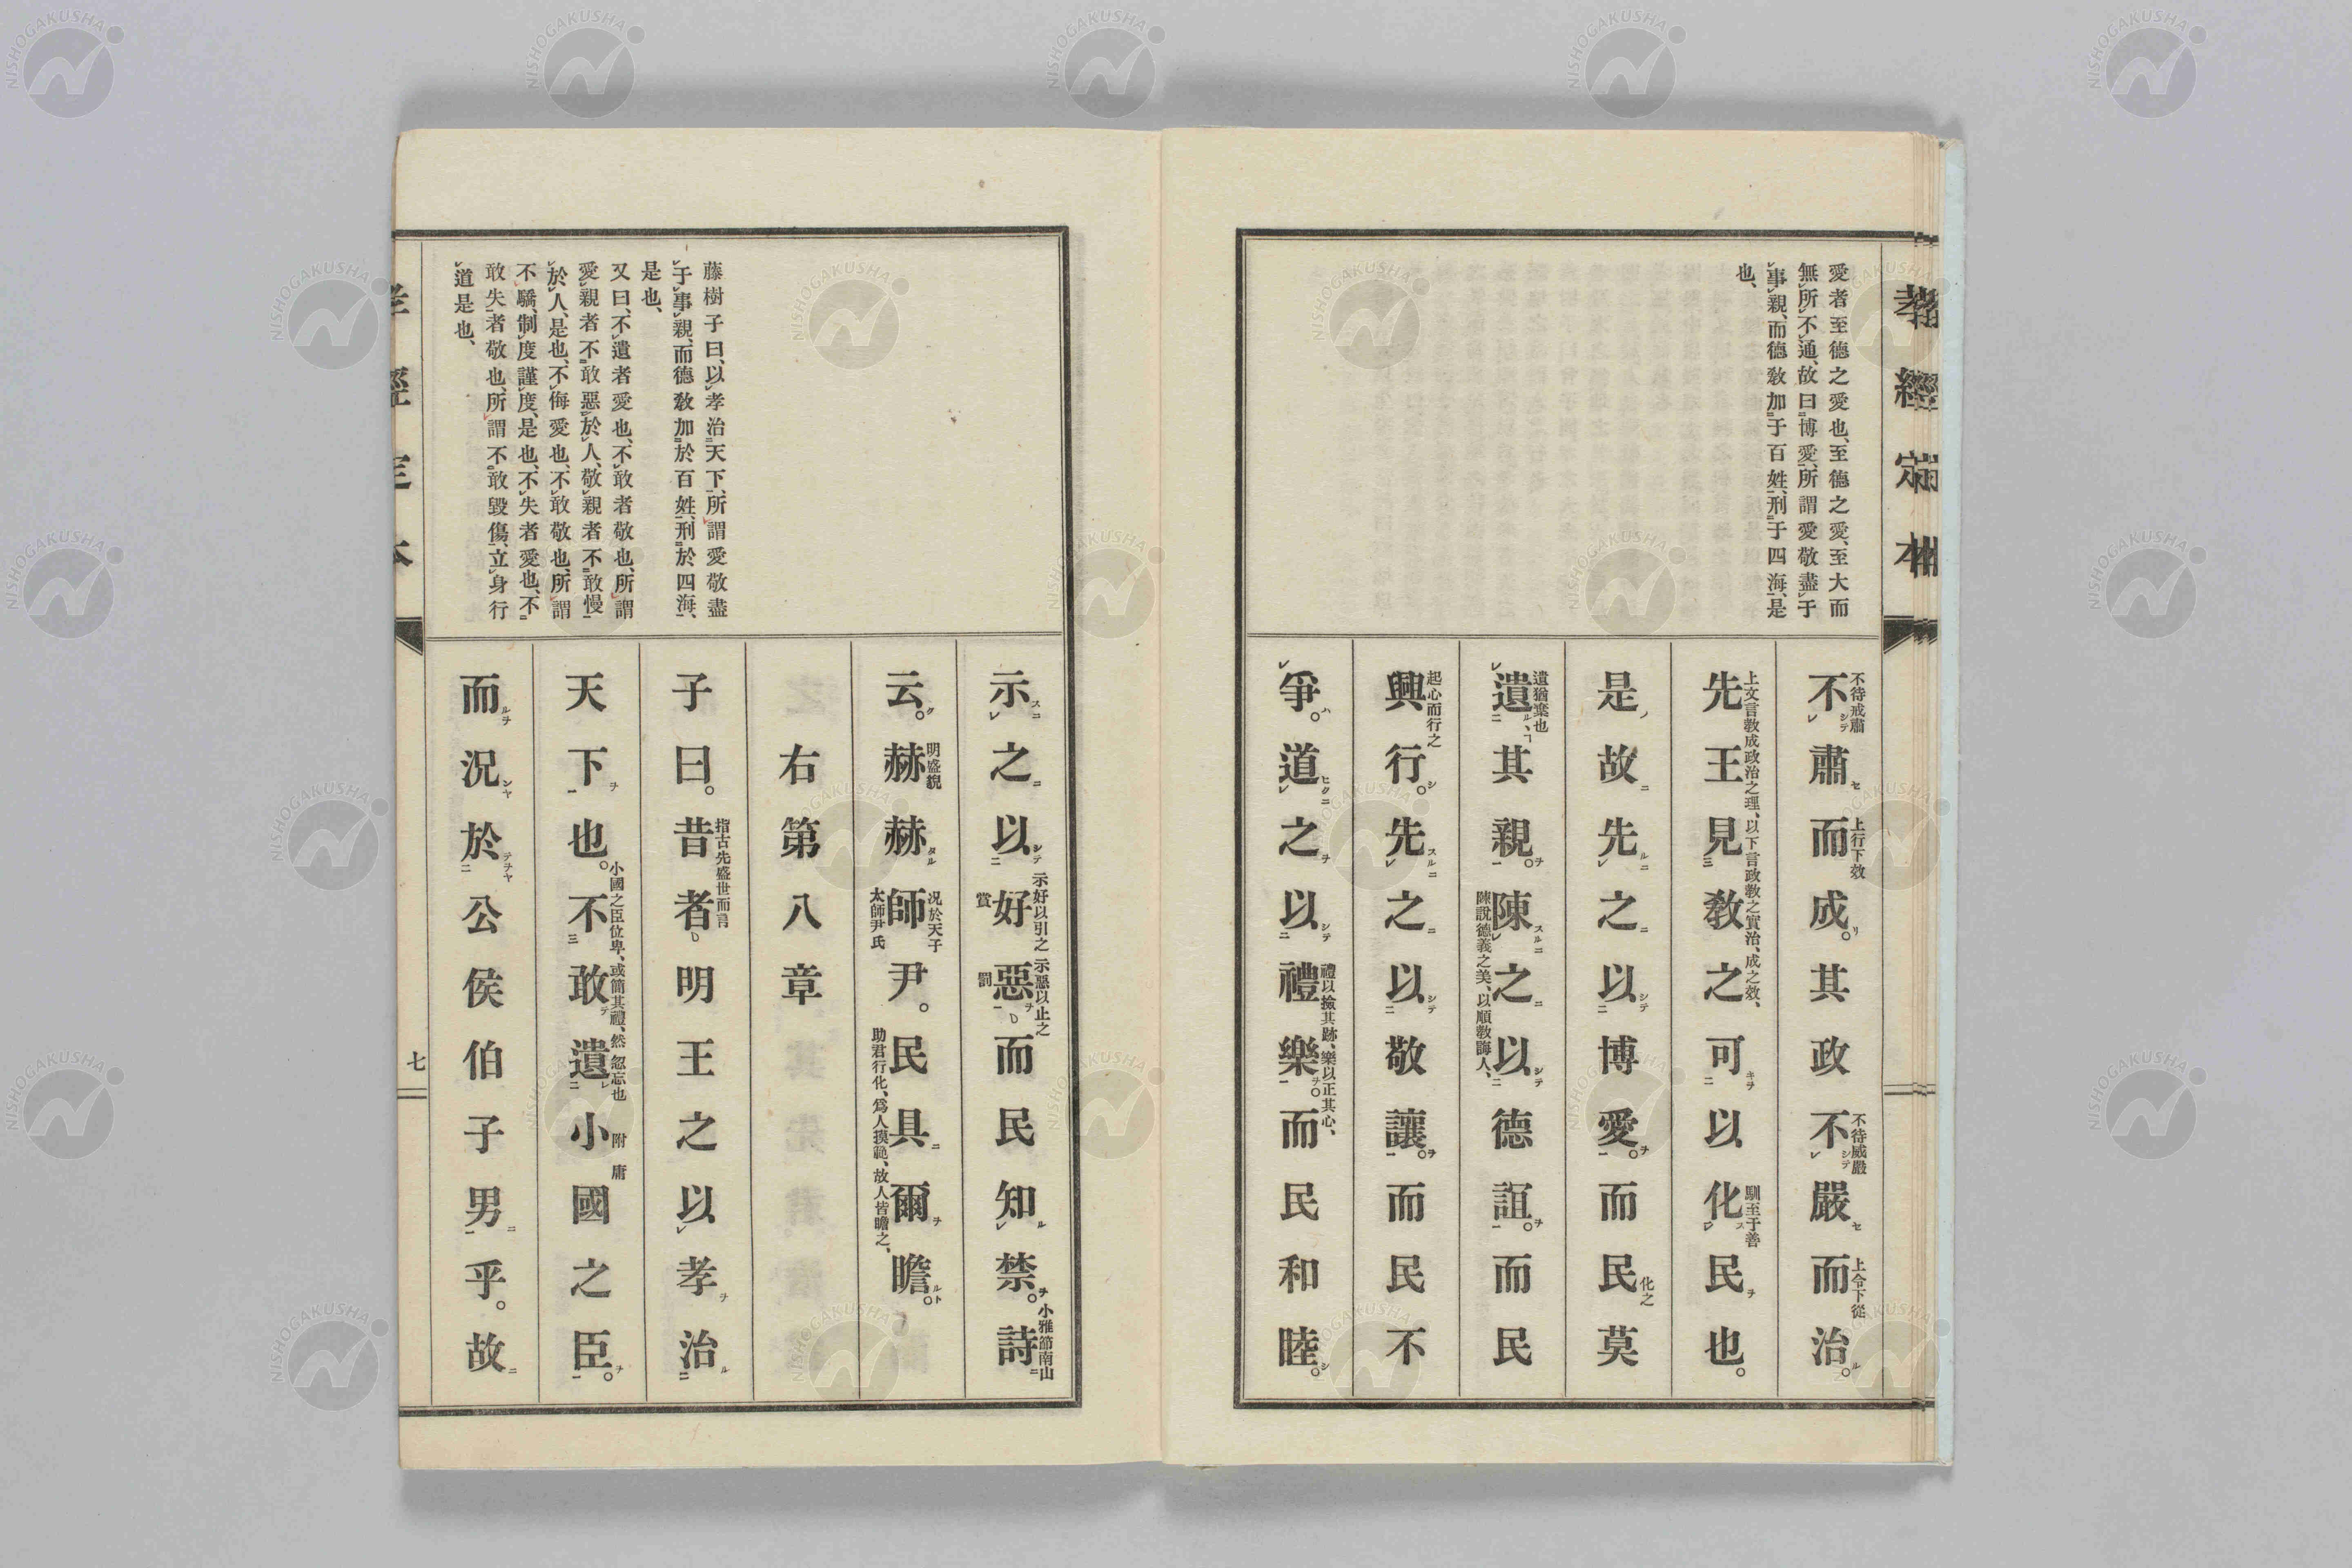 孝經定本
愛者至德之愛也、至德之愛、至大而
無所不通、故曰博愛、所謂愛敬盡于
事親、而德敎加于百姓、刑于四海、是
也、
不待戒肅
上行下效
不待威嚴
上令下從
不肅而成。其政不嚴而治。
上文言敎成政治之理、以下言政敎之實治、成之效、
馴至于善
先王見敎之可以化民也。
化之
是故先之以博愛。而民莫
遺猶棄也
遺其親。陳之以德誼。而民
陳說德義之美、以順敎誨人、
起心而行之
興行。先之以敬讓。而民不
禮以撿其跡、樂以正其心、
爭。道之以禮樂。而民和睦。
藤樹子曰、以孝治天下、所謂愛敬盡
于事親、而德敎加於百姓、刑於四海、
是也、
又曰、不遺者愛也、不敢者敬也、所謂
愛親者不敢惡於人、敬親者不敢慢
於人、是也、不侮愛也、不敢敬也、所謂
不驕、制度謹度、是也、不失者愛也、不
敢失者敬也、所謂不敢毀傷、立身行
道是也、
示好以引之
示惡以止之
小雅節南山
示之以好惡。而民知禁。詩
賞
罰
明盛貌
況於天子
云。赫赫師尹。民具爾瞻。
太師尹氏
助君行化、爲人摸範、故人皆瞻之、
右第八章
指古先盛世而言
子曰。昔者明王之以孝治
小國之臣位卑、或簡其禮、然
忽忘也
附庸
天下也。不敢遺小國之臣。
而況於公侯伯子男乎。故
孝經定本
七
NISHOGAKUSHA